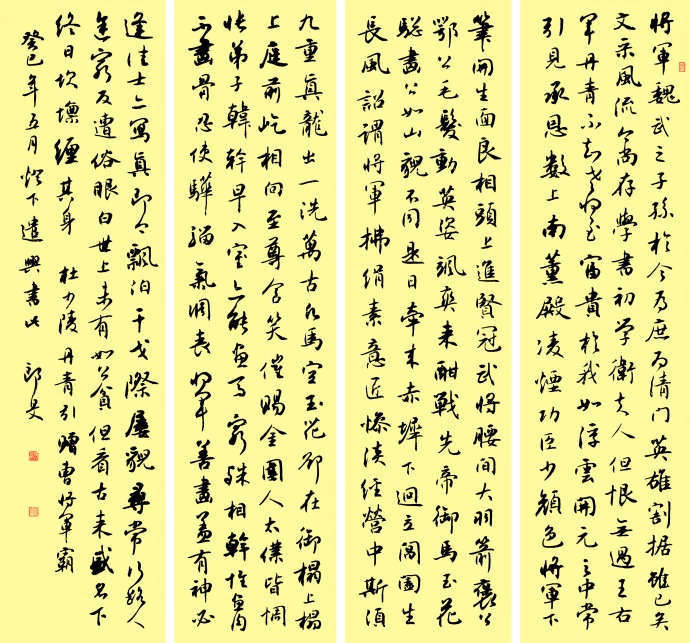 將軍魏武之子孫於今為庶為清門英雄割據雖已矣
文采風流今尚存學書初學衛夫人但恨無過王右
軍丹青不知老將至富貴於我如浮雲開元之中常
引見承恩數上南薰殿凌煙功臣少顏色將軍下
筆開生面良相頭上進賢冠武將腰間大羽箭褒公
鄂公毛髮動英姿颯爽來酣戰先帝御馬玉花
驄畫公如山貌不同是日牽來赤墀下迥立閶闔生
長風詔謂將軍拂絹素意匠慘淡經營中斯須
九重真龍出一洗萬古凡馬空玉花卻在御榻上榻
上庭前屹相向至尊含笑催賜金圉人太僕皆惆
悵弟子韓幹早入室亦能畫馬窮殊相幹惟畫肉
不畫骨忍使驊騮氣凋喪將軍善畫蓋有神必
逢佳士亦寫真即今飄泊干戈際屢貌尋常行路人
途窮反遭俗眼白世上未有如公貧但看古來盛名下
終日坎壈纏其身 杜少陵丹青引贈曹將軍霸
癸巳年五月燈下遣興書此 郎